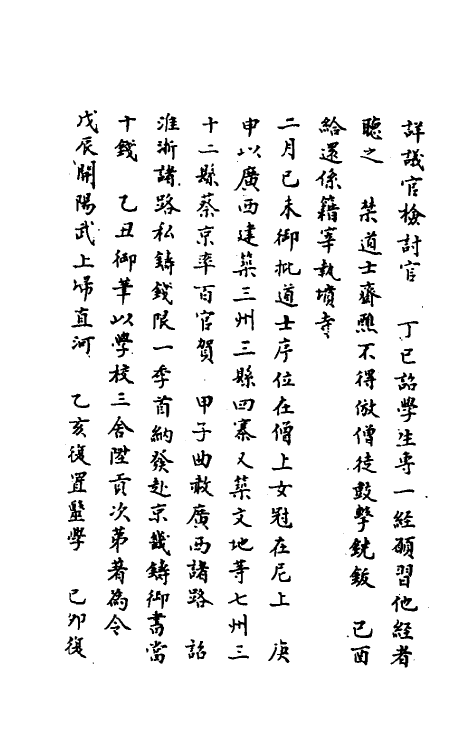 詳議官檢討官　丁巳詔學生專一經願習他經者
聽之　禁道士齋醮不得倣僧徒鼓擊鐃鈸　己酉
給還係籍宰執墳寺
二月己未御批道士序位在僧上女冠在尼上　庚
申以廣西建築三州三縣四寨又築文地等七州三
十二縣蔡京率百官賀　甲子曲赦廣西諸路　詔
淮浙諸路私鑄錢限一季首納發赴京畿鑄御書當
十錢　乙丑御筆以學校三舍陞貢次第著為令
戊辰開陽武上埽直河　乙亥復置醫學　己卯復